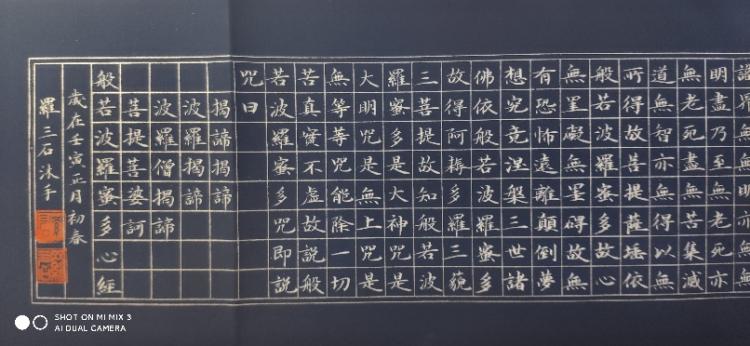 明盡乃至無老死亦
無老死盡無苦集滅
道無智亦無得以無
所得故菩提薩埵依
般若波羅蜜多故心
無罣礙無罣碍故無
有恐怖遠離顛倒夢
想究竟涅槃三世諸
佛依般若波羅蜜多
故得阿耨多羅三藐
三菩提故知般若波
羅蜜多是大神咒是
大明咒是無上咒是
無等等咒能除一切
苦真實不虛故說般
若波羅蜜多咒即說
咒曰
揭諦揭諦
波羅揭諦
波羅僧揭諦
菩提婆訶
般若波羅蜜多心經
歲在壬寅正月初春
羅三石沐手
SHOT ON MI MIX 3
AI DUAL CAMERA